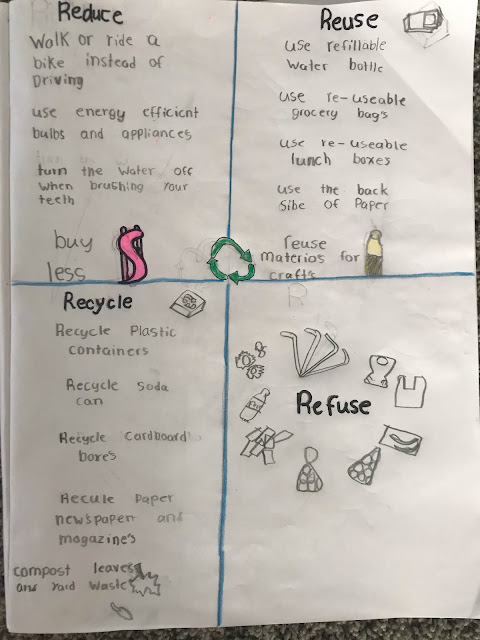 Reduce
Walk or ride a
bike instead of
Driving
use energy efficient
bulbs and appliances
turn the water off
when brushing your
teeth
buy
less
Reuse
use refillable
water bottle
use re-useable
grocery bags
use re-useable
lunch boxes
use the back
Sibe of Paper
reuse
Materios for
crafts
Recycle
Recycle Plastic
containers
Recycle soda
can
Recycle Cardboard
boxes
Recule Paper
newspaper and
magazine's
compost leaves
and yard waste
R
Refuse